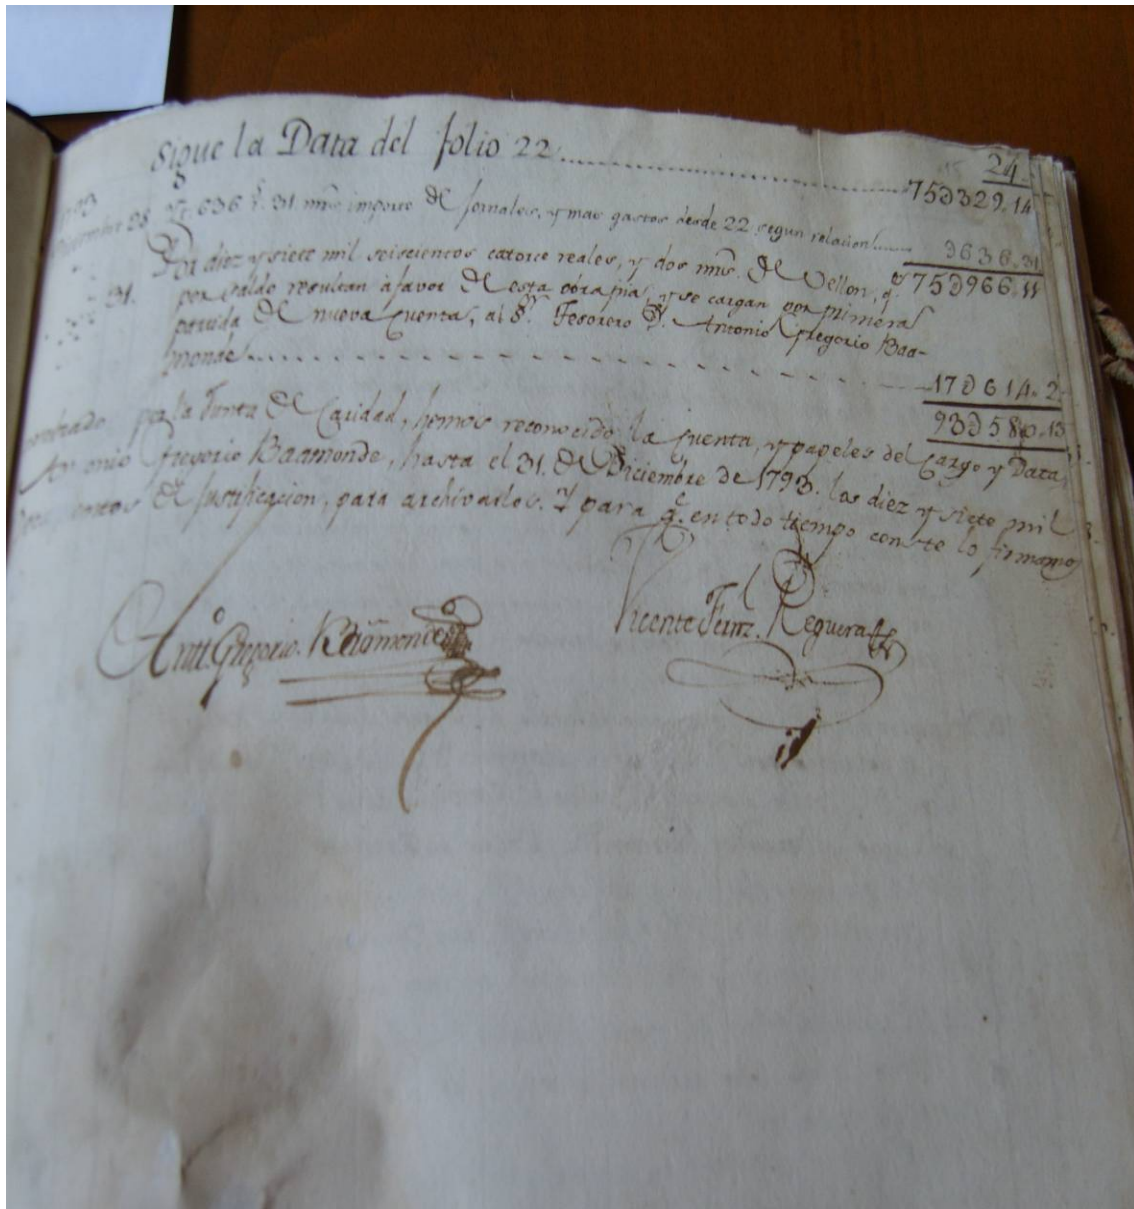 24
Sigue la Data del folio 22 75D329.14
1793
Diciembre 28. Yt. 636 rs. 31 mrs. importe de Jornales, y mas gastos desde 22 segun relacion D636.31
75D966.11
31. diez y siete mil seiscientos catorce reales, y dos mrs. de Vellon, q.
por saldo resultan à favor de esta obra pia, y se cargan por primera
partida de nueva cuenta, al Sr. Tesorero Dn. Antonio Gregorio Baa-
monde 17D614.2
93D580.13
por la Junta de Caridad, hemos reconocido la cuenta, y papeles del Cargo y Data,
Antonio Gregorio Baamonde, hasta el 31. de Diciembre de 1793. los diez y siete mil
de Justificacion, para archivarlos. Y para q.e en todo tiempo conste lo firmamos
Antt.o Gregorio Baamonde
Vicente Fernz. Reguera